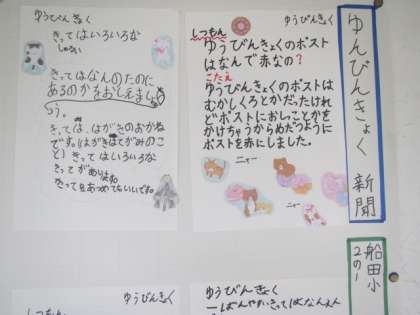 ゆんびんきょく 新聞
船田小
2の1
ゆうびんきょく
しつもん
ゆうびんきょくのポスト
はなんで赤なの?
こたえ
ゆうびんきょくのポストは
むかしくろとかだったけれ
どポストにおしことかを
かけちゃうからめだつように
ポストを赤にしました。
ニャー
ニャー
ゆうびんきょく
きってはいろいろな
きってはなんのたのに
あるのかをおしえましょ
う。
きっては、はがきのおかね
です。(はがきはてがみのこ
と)きってはいろいろな
きってがあります。
きってをあつめてもいいです。
ゆうびんきょく
ゆうびんきょく
しつもん